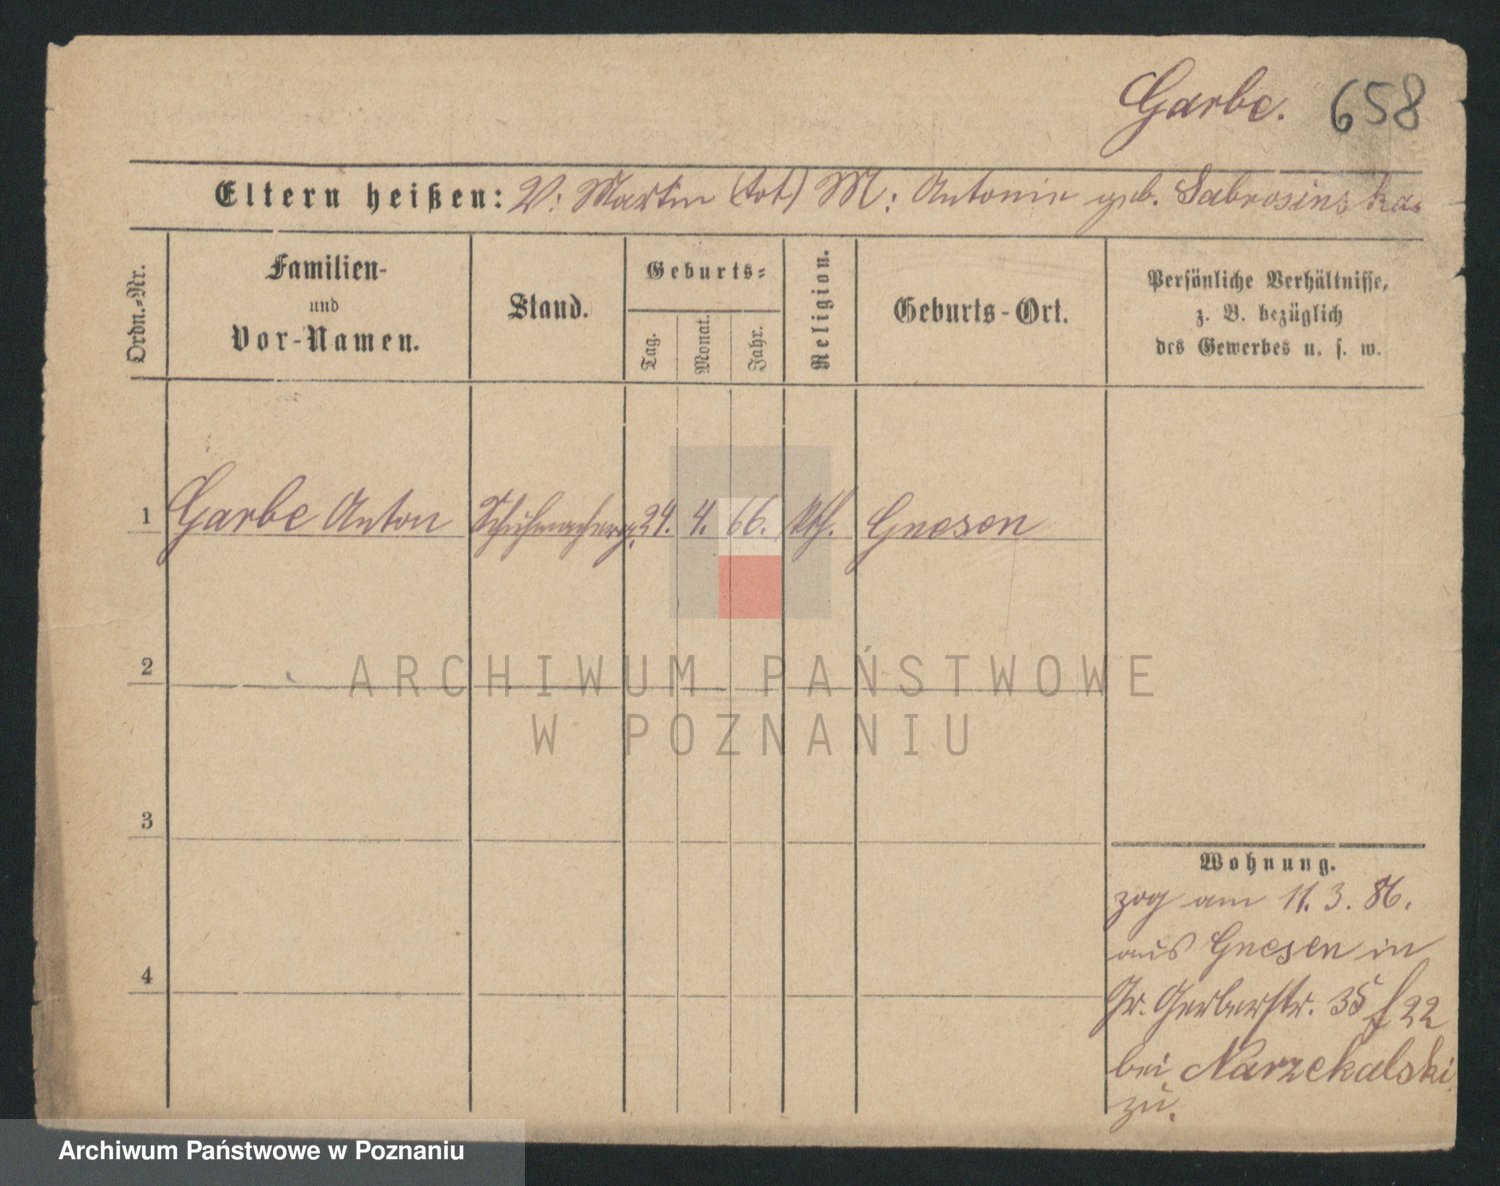 Garbe. 658
Eltern heißen: V: Martin (tot) M: Antonie geb. Sabrosinska.
Ordn.-Nr.
Familien-
und
Vor-Namen.
Stand.
Geburts-
Tag.
Monat.
Jahr.
Religion.
Geburts-Ort.
Persönliche Verhältnisse,
z. B. bezüglich
des Gewerbes u. s. w.
1 Garbe Anton Schuhmacherg. 24. 4. 66. kth. Gnesen
2
ARCHIWUM PAŃSTWOWE
W POZNANIU
3
4
Wohnung.
zog am 11. 3. 86.
aus Gnesen in
Gr. Gerberstr. 35 f 22
bei Narzekalski
zu.
Archiwum Państwowe w Poznaniu